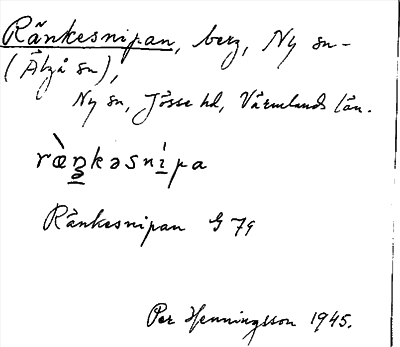 Ränkesnipan, berg, Ny sn-
(Älgå sn),
Ny sn, Jösse hd, Värmlands län.
ræ̀ŋkəsnípa
Ränkesnipan G 79
Per Henningsson 1945.